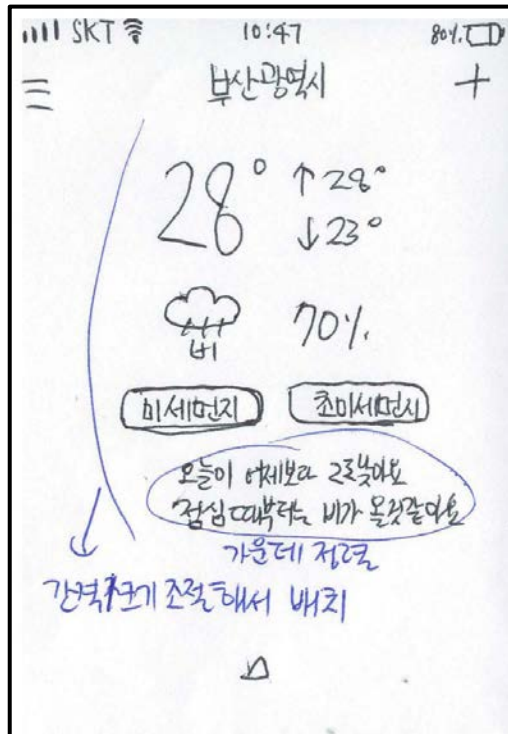 SKT 10:47 80%
부산광역시 +
28° ↑28°
↓23°
비 70%
미세먼지 초미세먼지
오늘이 어제보다 2도 낮아요
점심때부터는 비가 올것같아요
가운데 정렬
간격/크기 조절해서 배치